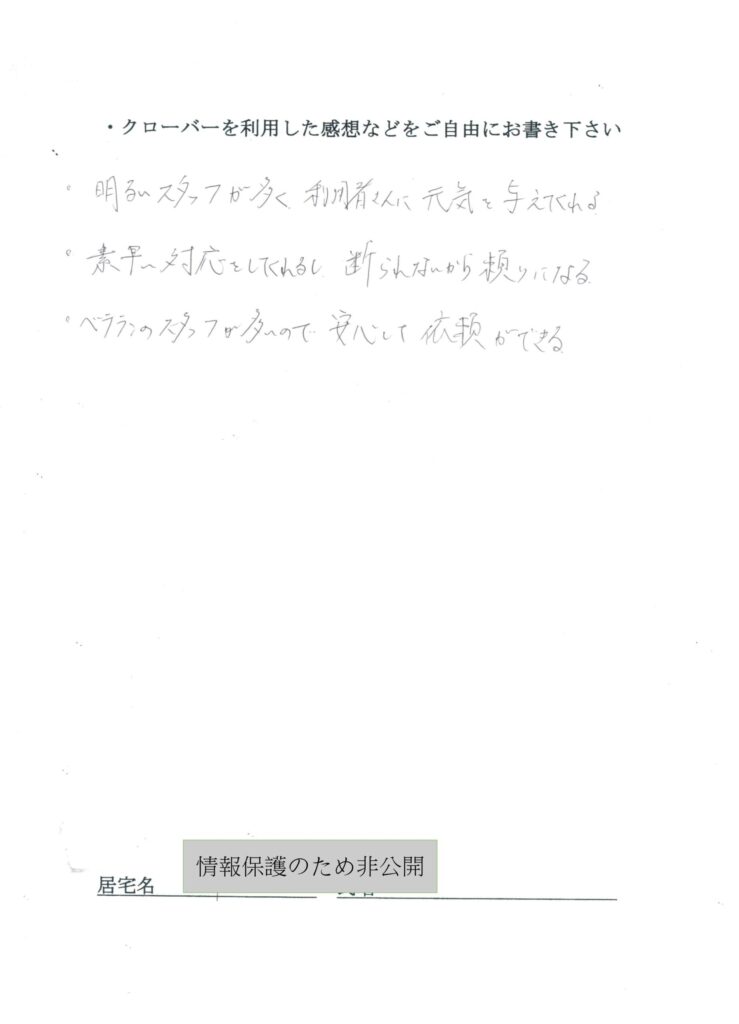 ・クローバーを利用した感想などをご自由にお書き下さい
。明るいスタッフが多く、利用者さんに元気を与えてくれる
。素早い対応をしてくれるし、断られないから頼りになる。
。ベテランのスタッフが多いので、安心して依頼ができる。
情報保護のため非公開
居宅名